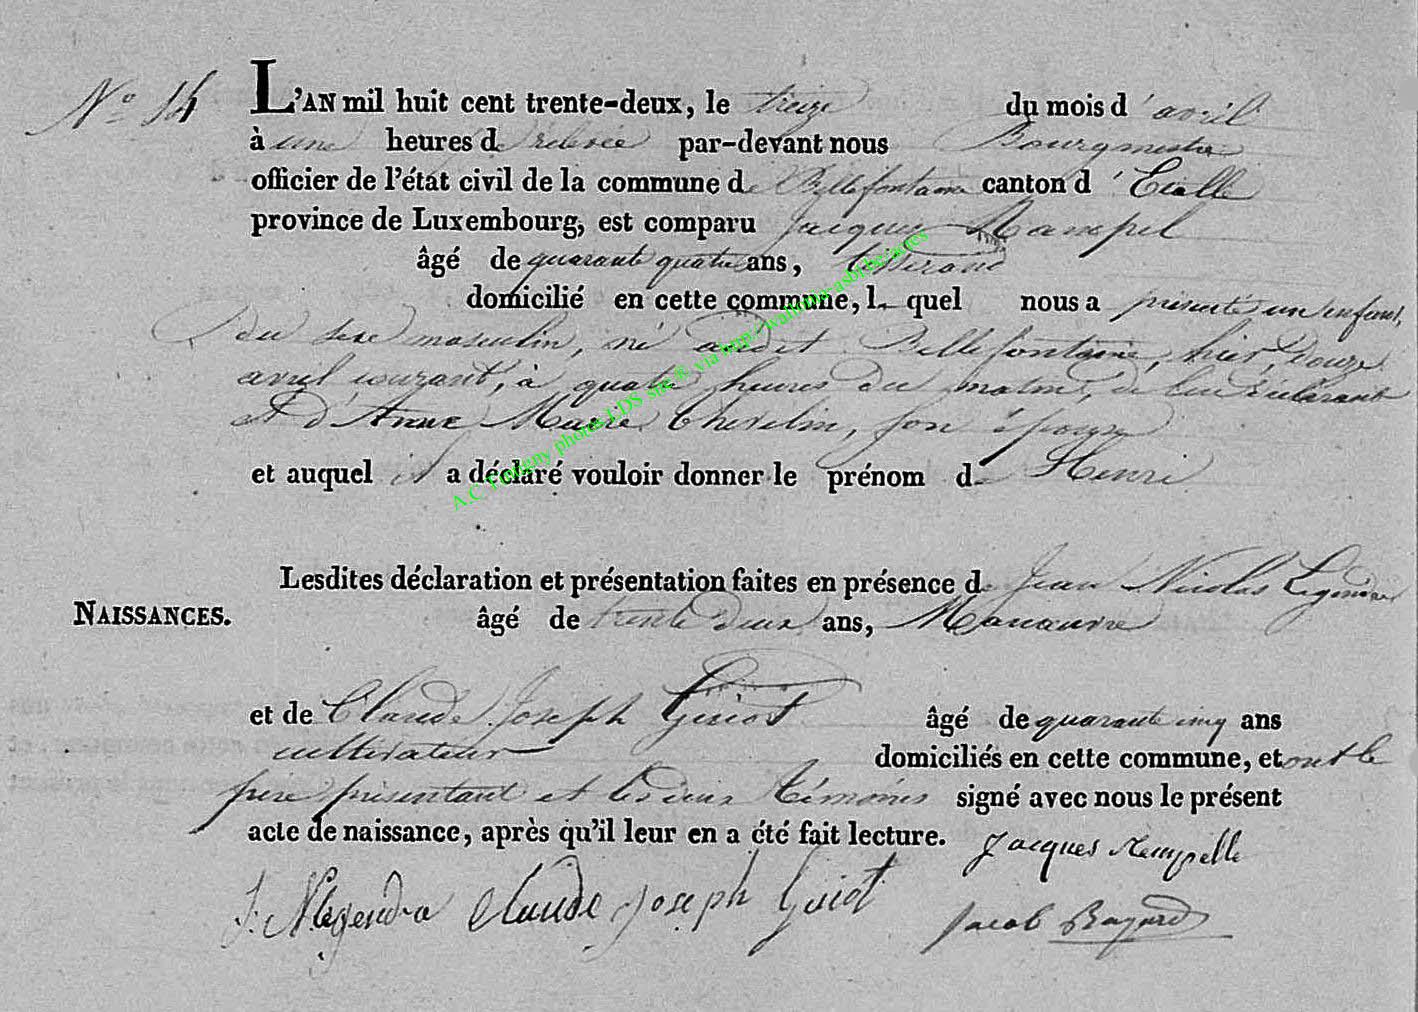 N° 14
L'AN mil huit cent trente-deux, le treize du mois d'avril
à une heures de relevée par-devant nous Bourgmestre
officier de l'état civil de la commune de Bellefontaine canton d'Etalle
province de Luxembourg, est comparu Jacques Rampel
âgé de quarante quatre ans, tisserand
domicilié en cette commune, l quel nous a présenté un enfant
du sexe masculin, né audit Bellefontaine, hier, douze
avril courant, à quatre heures du matin, de lui déclarant
et d'Anne Marie Thevelin, son épouse
et auquel il a déclaré vouloir donner le prénom de Henri
Lesdites déclaration et présentation faites en présence de Jean Nicolas Legendre
NAISSANCES.
âgé de trente deux ans, Manœuvre
et de Claude Joseph Guiot âgé de quarante cinq ans
cultivateur domiciliés en cette commune, et ont le
pere présentant et les deux témoins signé avec nous le présent
acte de naissance, après qu'il leur en a été fait lecture.
Jacques Rempelle
J. N Legendre Claude Joseph Guiot
Jacob Bayard
A.C Tintigny photos LDS site & via http://wallonia-asbl.be/actes